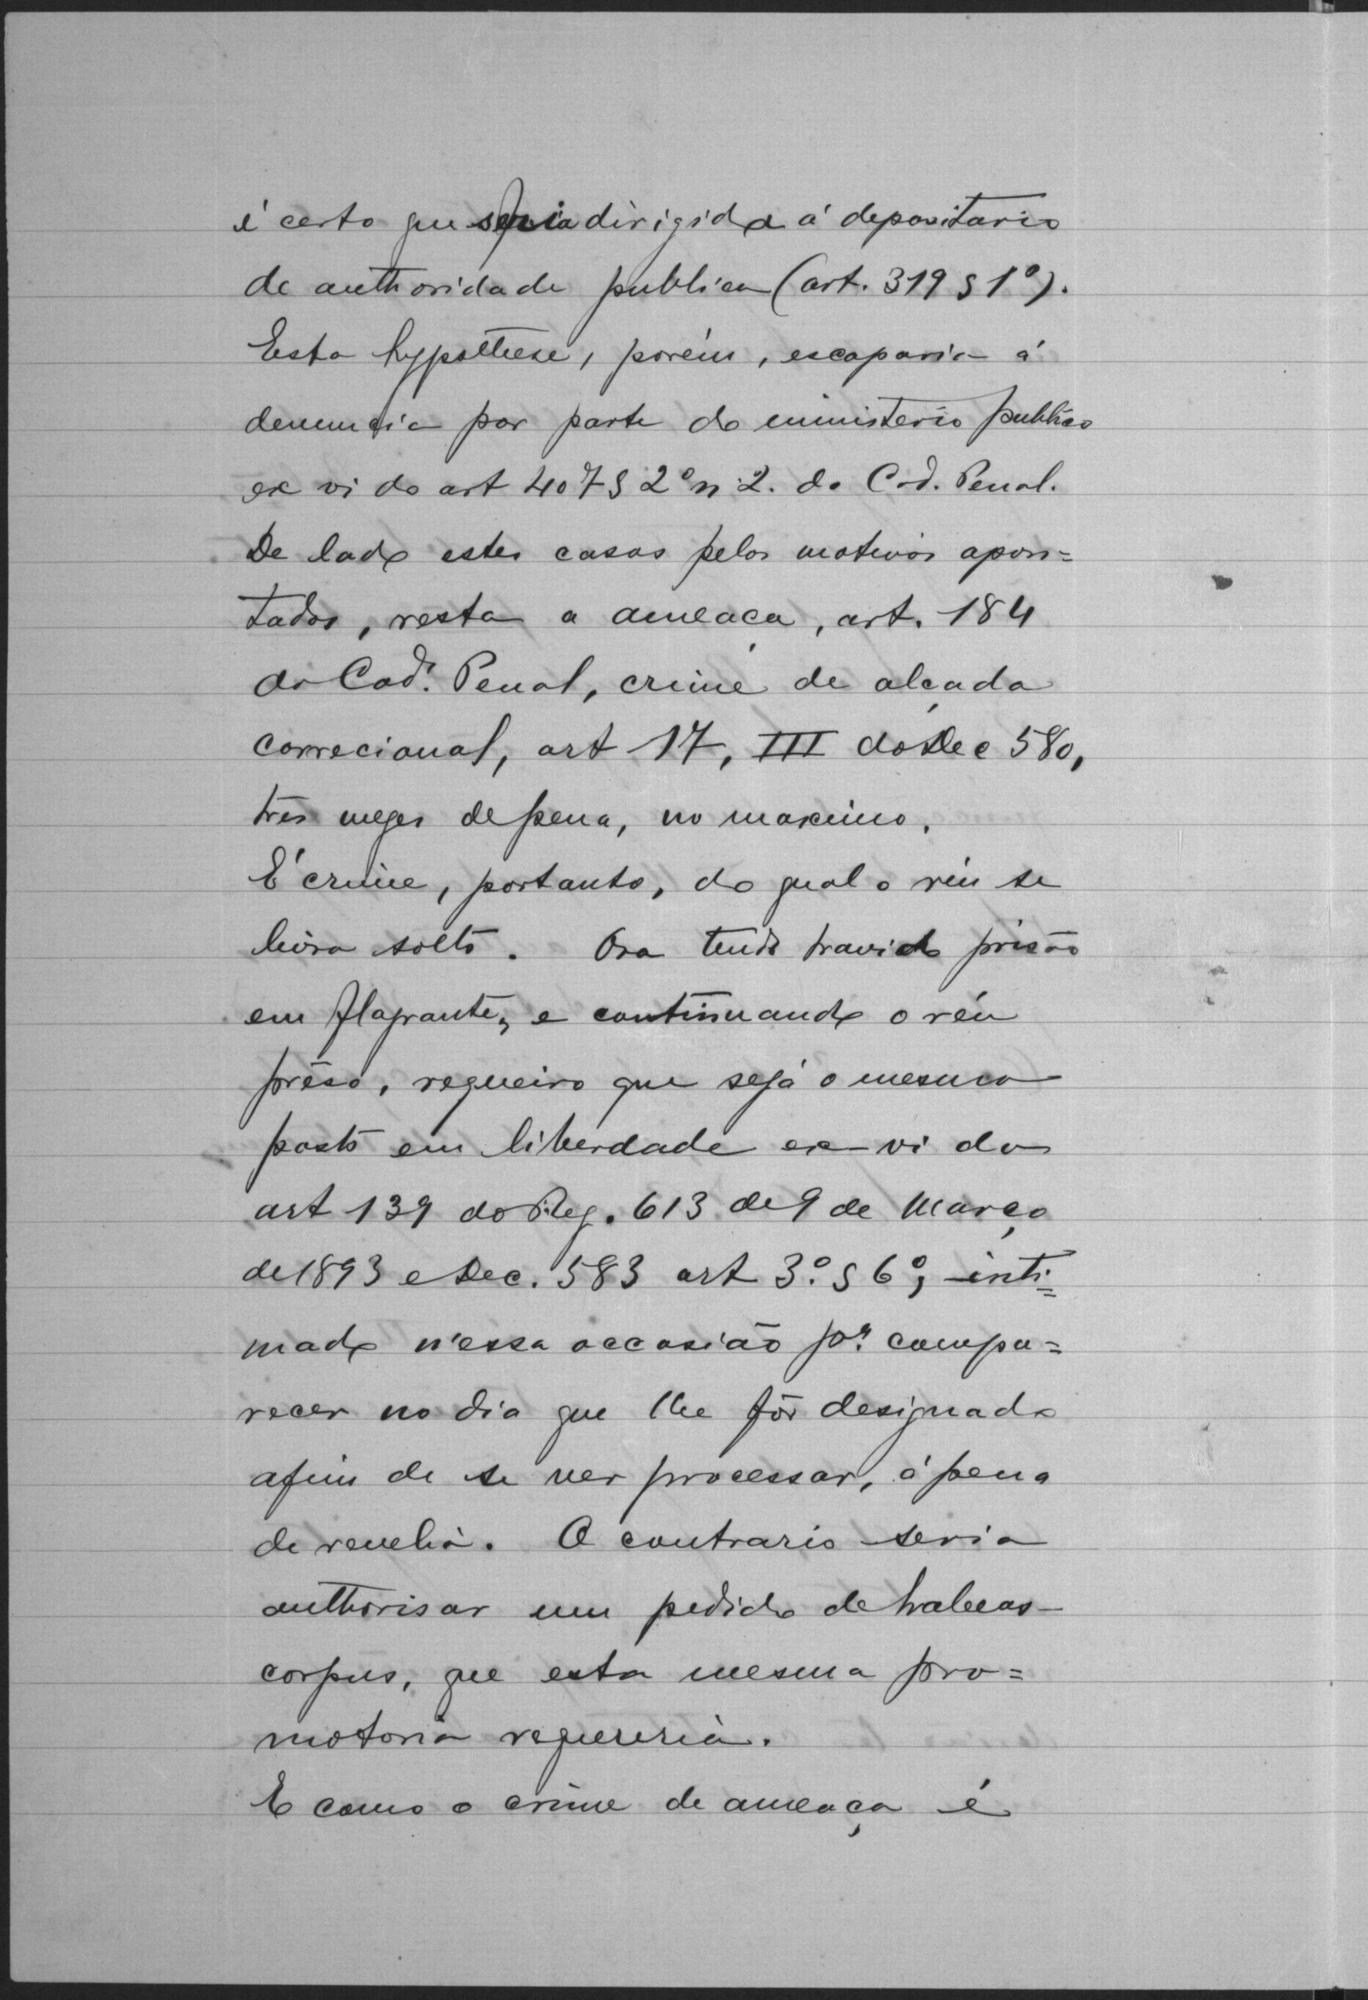 é certo que seria dirigida á depositario
de authoridade publica (art. 319 § 1º).
Esta hypothese, porém, escaparia á
denuncia por parte do ministerio publico
ex vi do art 407 § 2º n. 2. do Cod. Penal.
De lado estes casos pelos motivos apon=
tados, resta a ameaça, art. 184
do Cod. Penal, crime de alçada
correcional, art 17, III do Dec 580,
três mezes de pena, no maximo.
É crime, portanto, do qual o réu se
livra solto. Ora tendo havido prisão
em flagrante, e continuando o réu
prêso, requeiro que seja o mesmo
posto em liberdade ex-vi do
art 139 do Reg. 613 de 9 de Março
de 1893 e Dec. 583 art 3º. § 6º, inti=
mado n'essa occasião pª. compa=
recer no dia que lhe fôr designado
afim de se ver processar, á pena
de revelia. O contrario seria
authorisar um pedido de habeas-
corpus, que esta mesma pro=
motoria requereria.
E como o crime de ameaça é